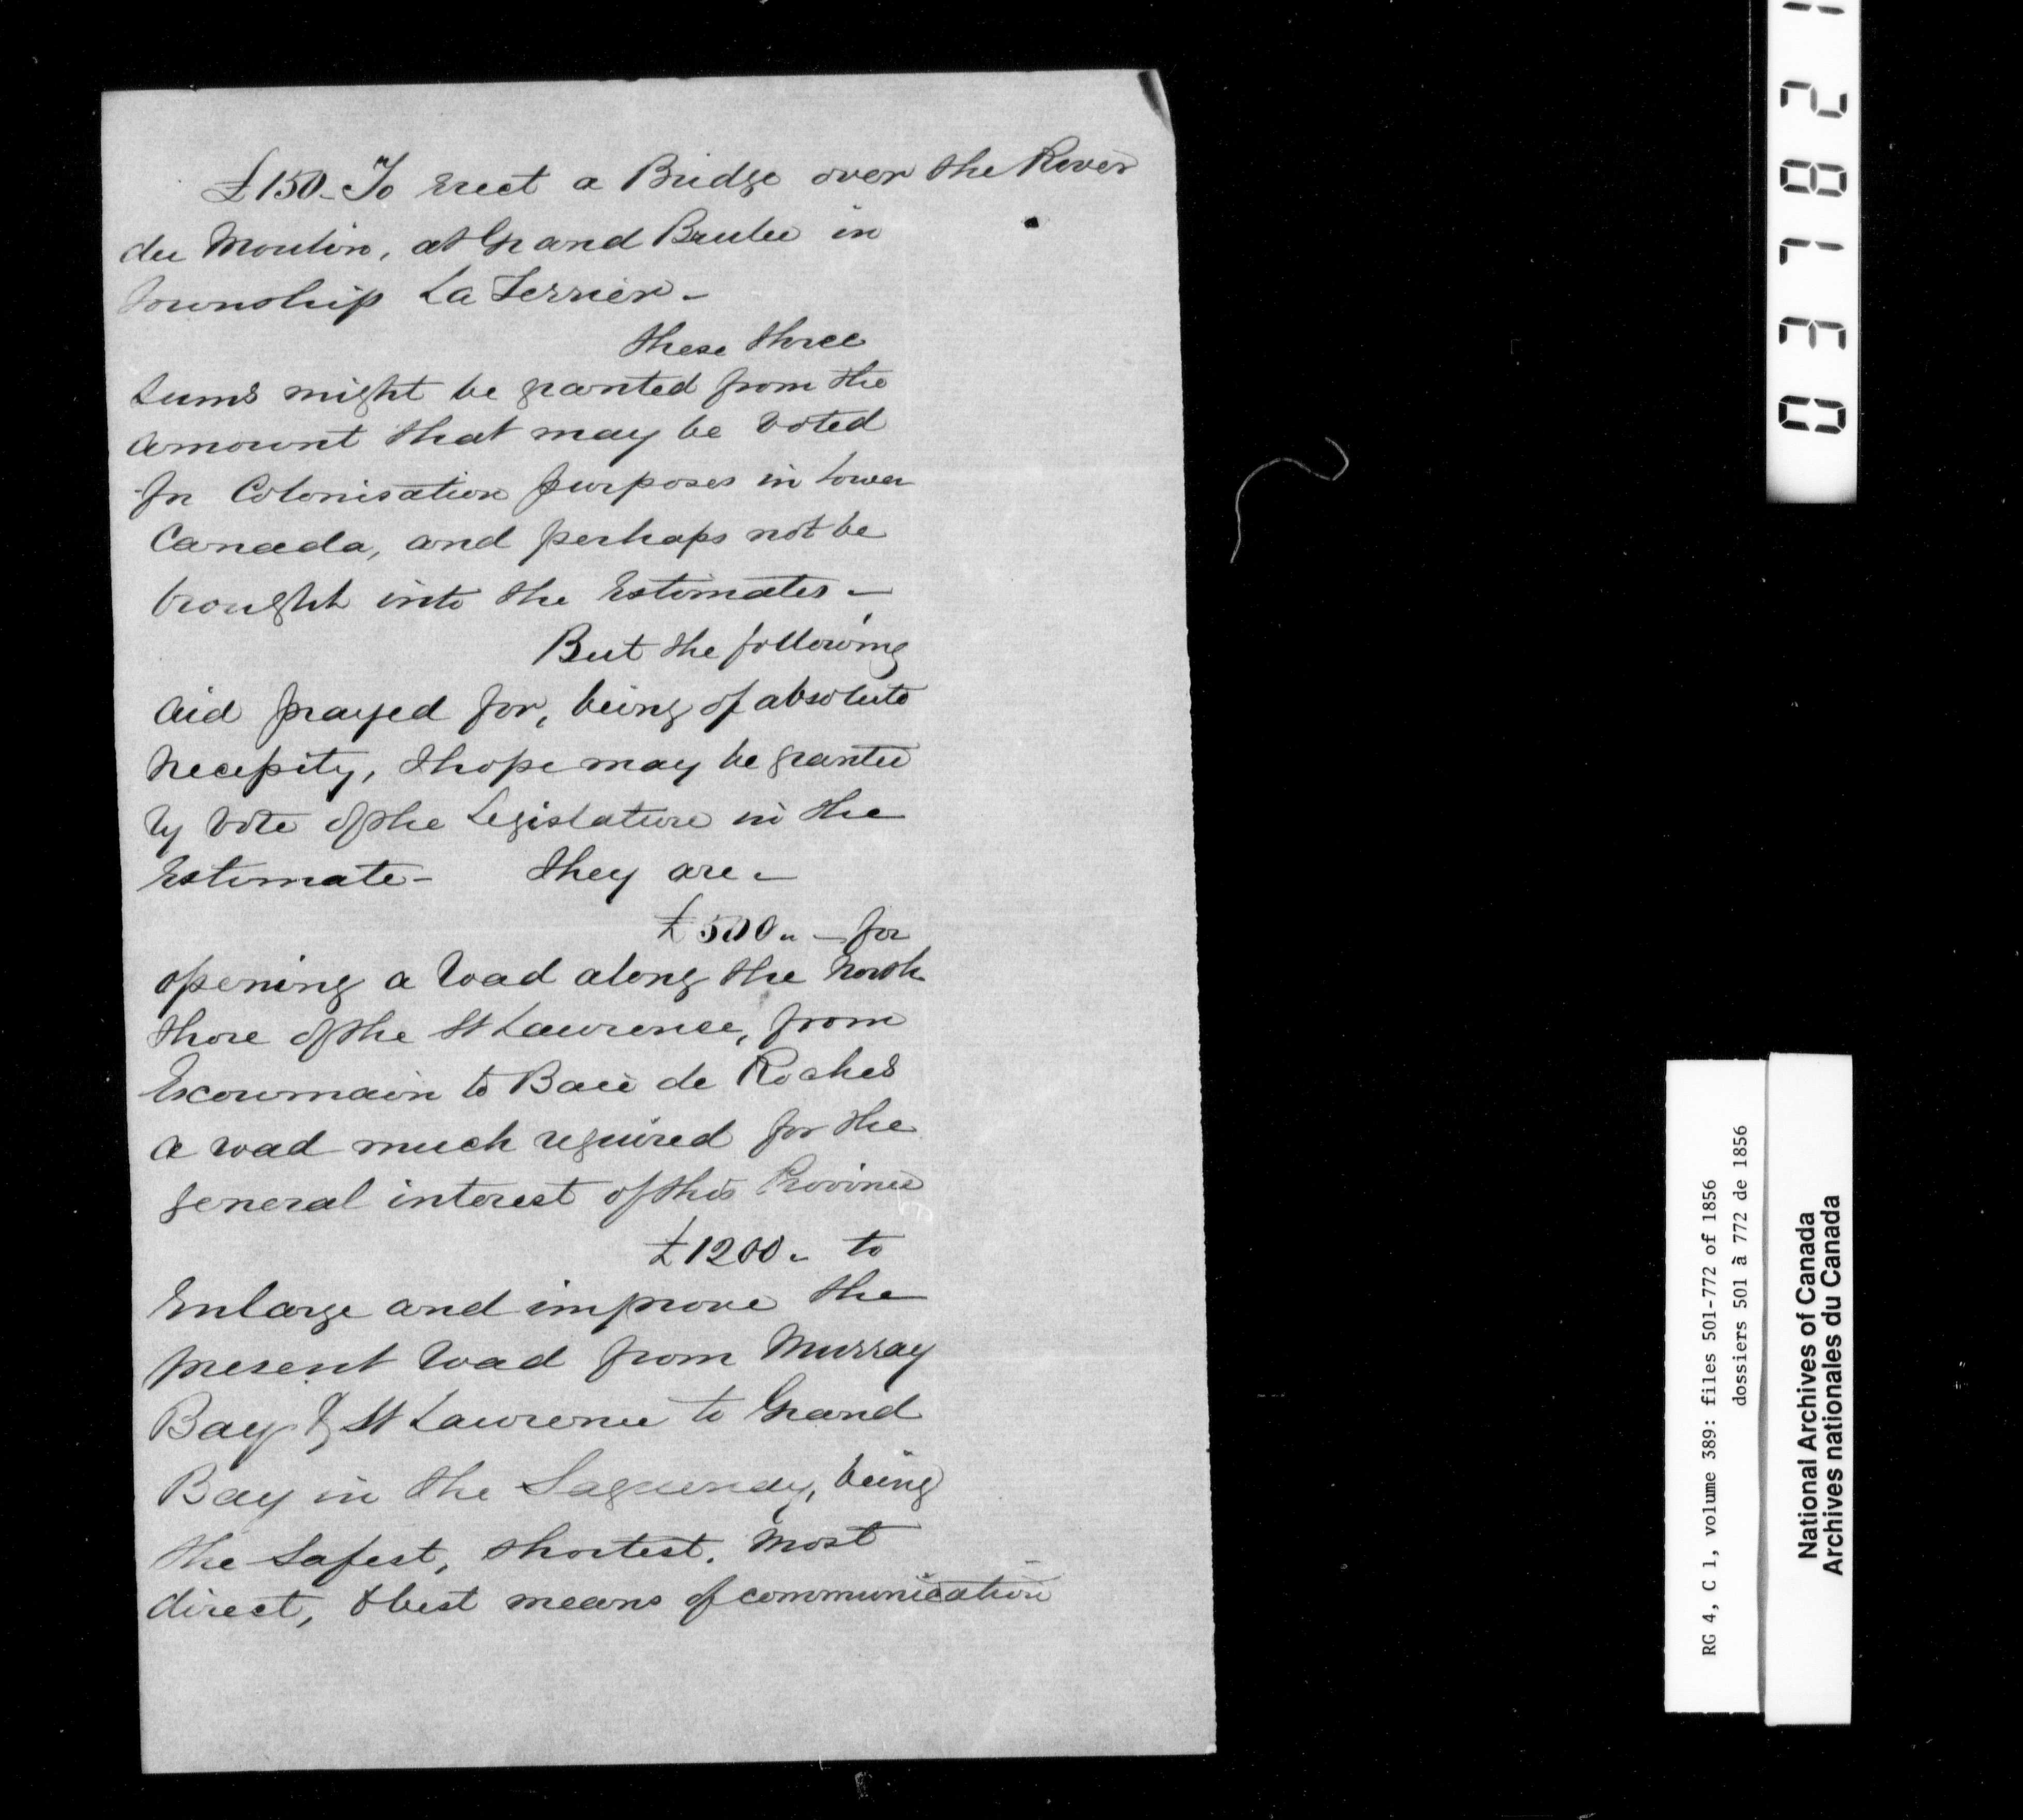 £150- To erect a Bridge over the River
du Moulin, at Grand Brulee in
Township La Terrier-
these three
sums might be granted from the
amount that may be voted
for Colonisation purposes in Lower
Canada, and perhaps not be
brought into the Estimates-
But the following
aid prayed for, being of absolute
necessity, I hope may be granted
by vote of the Legislature in the
Estimate- they are-
£500.. - for
opening a road along the North
Shore of the St Lawrence, from
Escoumain to Baie de Roches
a road much required for the
general interest of this Province
£1200.- to
Enlarge and improve the
present road from Murray
Bay St Lawrence to Grand
Bay in the Saguenay, being
the safest, shortest, most
direct, & best means of communication
037821
RG 4, C 1, volume 389: files 501-772 of 1856
dossiers 501 à 772 de 1856
National Archives of Canada
Archives nationales du Canada